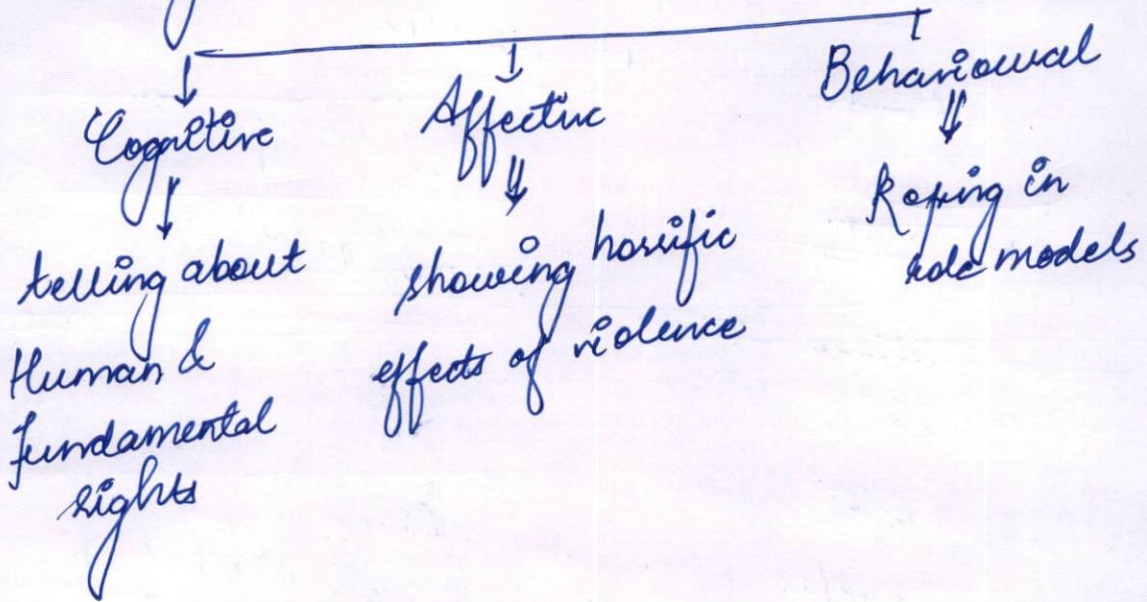 Cognitive
telling about
Human &
fundamental
rights
Affective
showing horrific
effects of violence
Behavioural
Roping in
role models